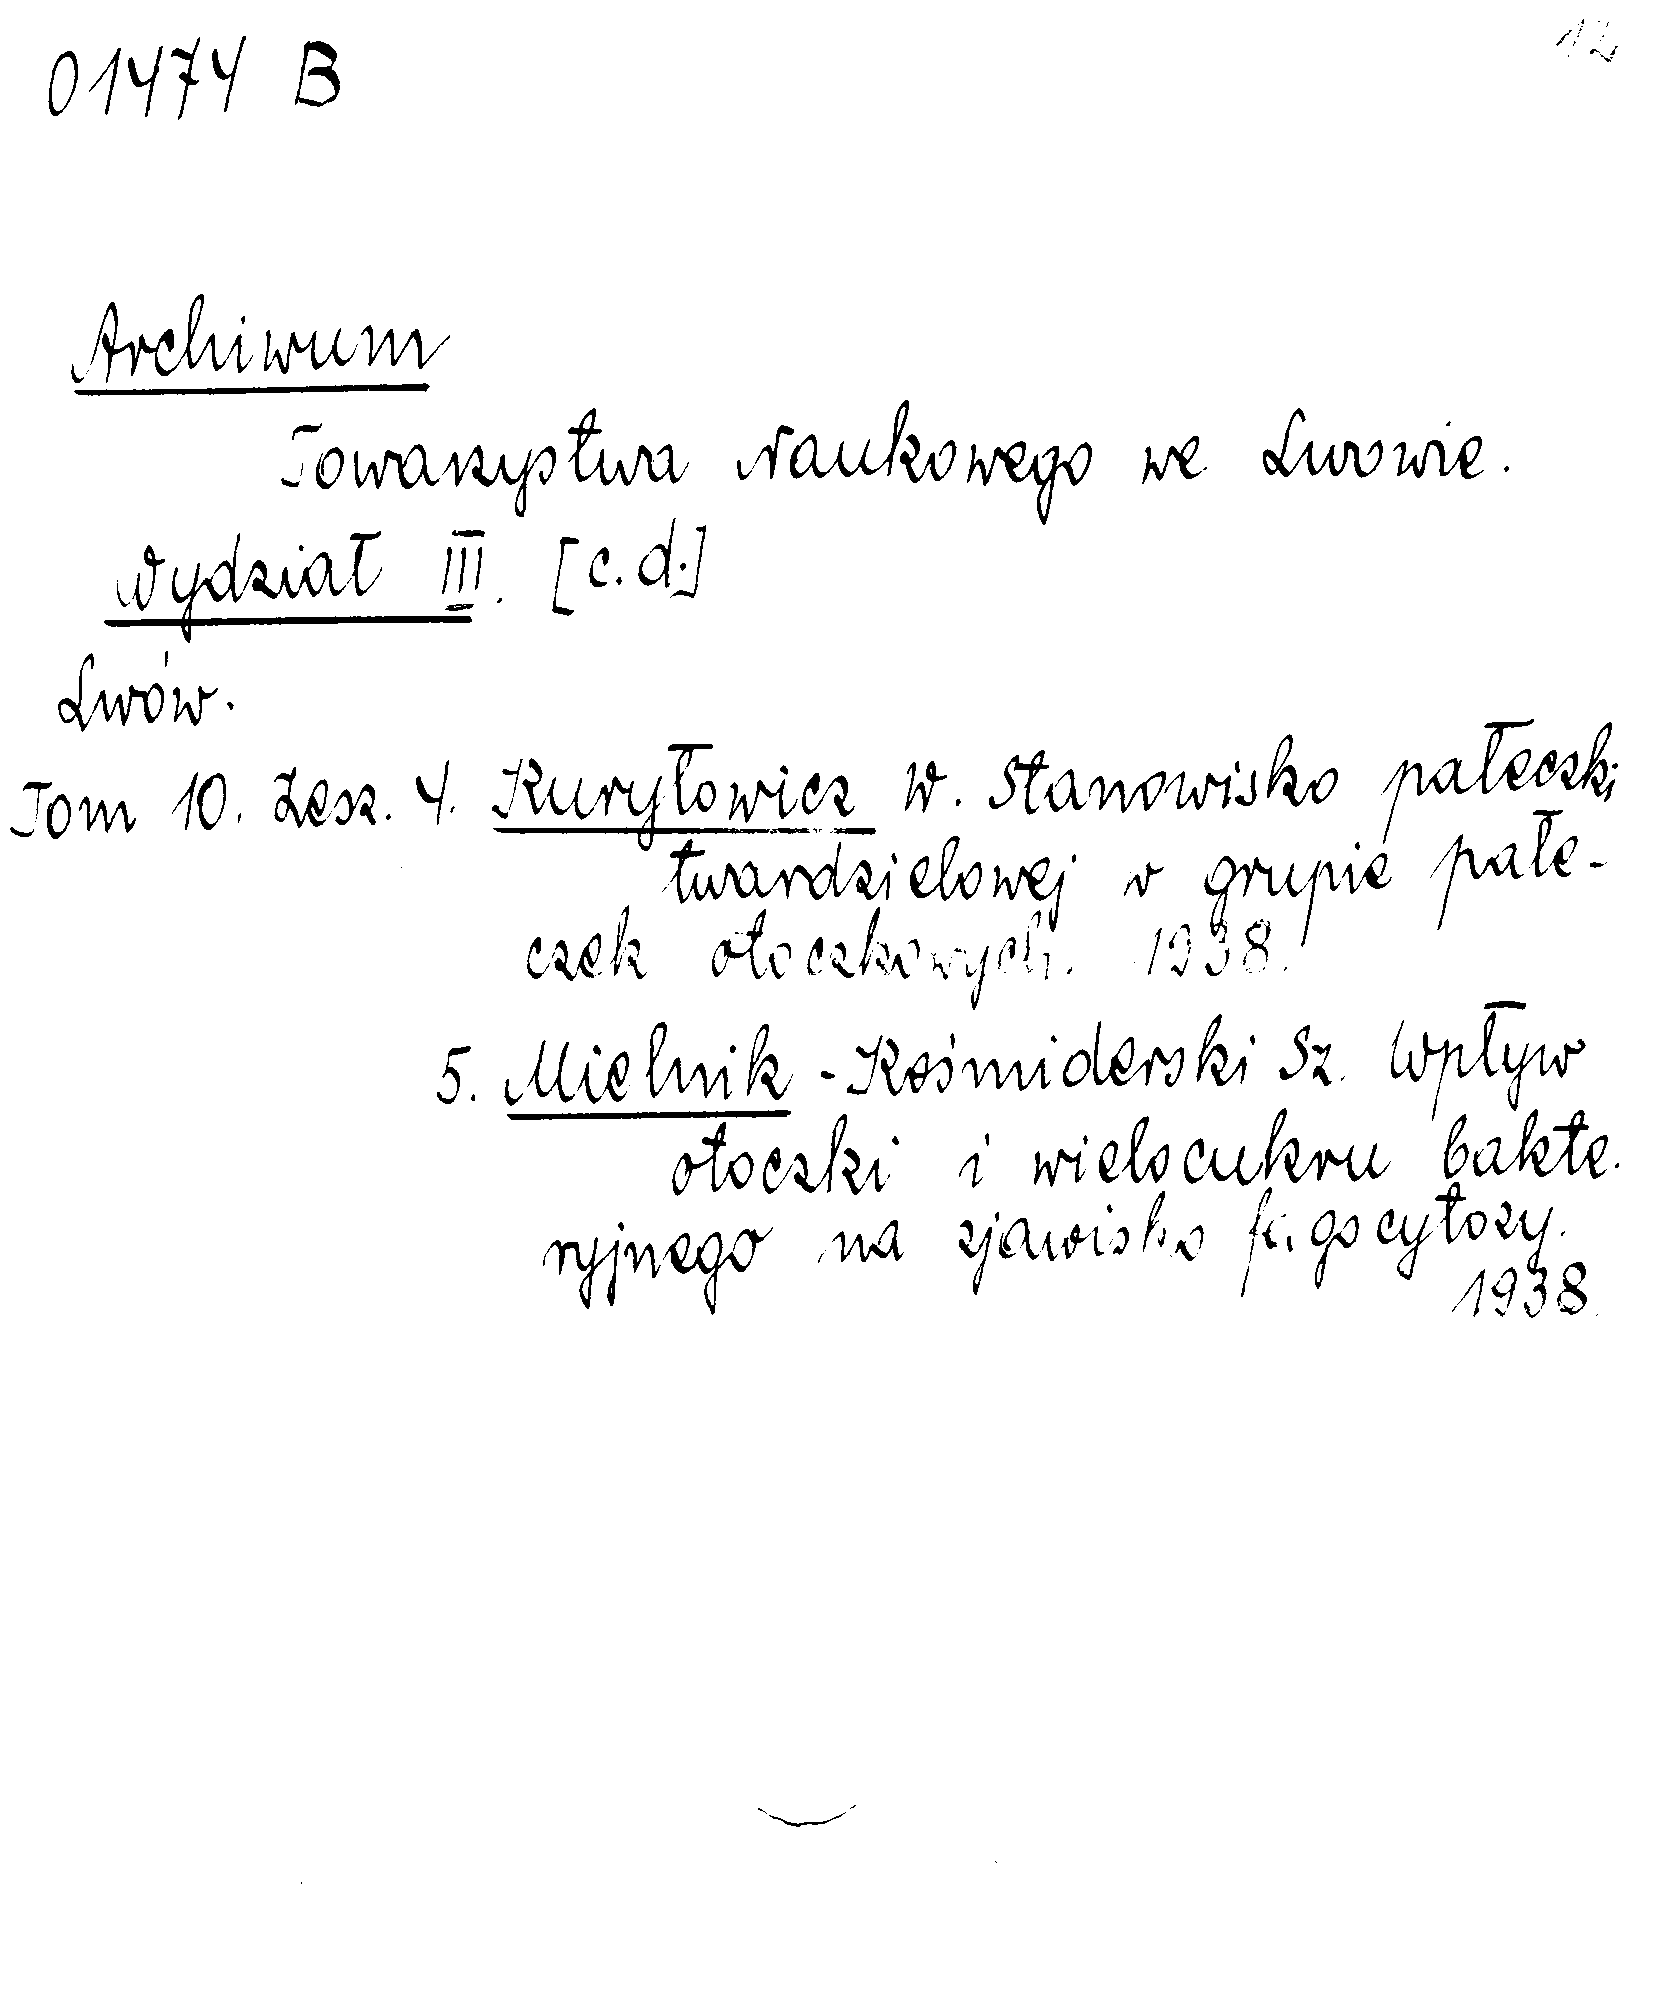 01474 B
12
Archiwum
Towarzystwa Naukowego we Lwowie.
Wydział III. [c.d.]
Lwów.
Tom 10. Zesz. 4. Kuryłowicz W. Stanowisko pałeczki
twardzielowej w grupie pałe-
czek otoczkowych. 1938.
5. Mielnik - Kośmiderski Sz. Wpływ
otoczki i wielocukru bakte-
ryjnego na zjawisko fagocytozy.
1938.